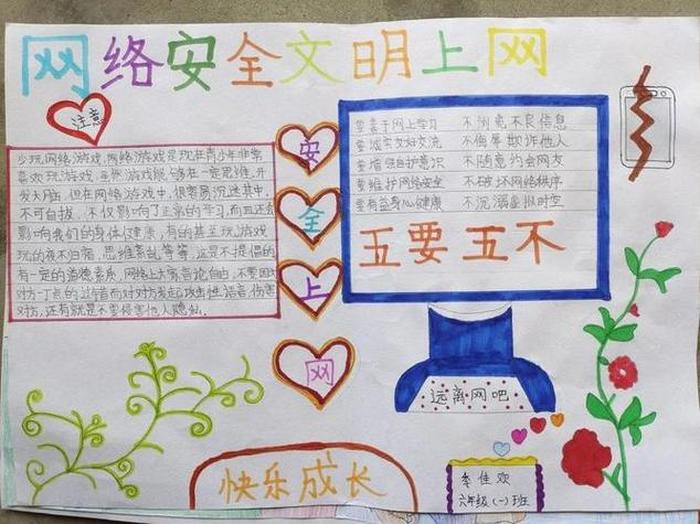 网络安全文明上网
注意
少玩网络游戏,网络游戏是现在青少年非常
喜欢玩游戏,虽然游戏能够在一定思维,开
发大脑,但在网络游戏中,很容易沉迷其中,
不可自拔,不仅影响了正常的学习,而且还会
影响我们的身体健康,有的甚至玩游戏
玩的夜不归宿,思维紊乱等等,这是不提倡的
有一定的道德素质,网络上大家言论自由,不要因为
对方一丁点的过错而对对方发起攻击性语言,伤害
对方,还有就是不要侵害他人隐私。
安
全
上
网
要善于网上学习 不浏览不良信息
要诚实友好交流 不侮辱欺诈他人
要增强自护意识 不随意约会网友
要维护网络安全 不破坏网络秩序
要有益身心健康 不沉溺虚拟时空
五要五不
远离网吧
快乐成长
李佳欢
六年级(一)班